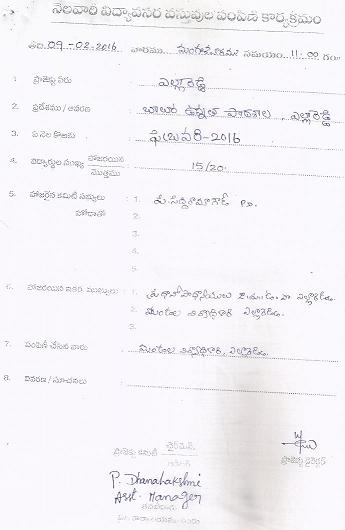 నెలవారి విద్యావసర వస్తువుల పంపిణి కార్యక్రమం
తేది 09-02-2016 వారము మంగళవారము సమయం 11.00 గం॥
1 ప్రాజెక్టు పేరు ఎల్లారెడ్డి
2. ప్రదేశము / ఆవరణ బాలుర ఉన్నత పాఠశాల, ఎల్లారెడ్డి
3. ఏ నెల కొరకు ఫిబ్రవరి-2016
4. విద్యార్థుల సంఖ్య హాజరయిన / మొత్తము 15/20.
5. హాజరైన కమిటి సభ్యులు : 1.
హోదాతో 2.
3.
4.
5.
6. హాజరయిన ఇతర ముఖ్యులు : 1. ప్రధానోపాధ్యాయులు ఎల్లారెడ్డి.
2. మండల విద్యాధికారి ఎల్లారెడ్డి.
3.
7. పంపిణీ చేసిన వారు మండల విద్యాధికారి, ఎల్లారెడ్డి.
8. వివరణ / సూచనలు
ప్రాజెక్టు కమిటి ఛైర్మన్
ప్రాజెక్టు డైరెక్టర్
P. Dhanalakshmi
Asst. Manager